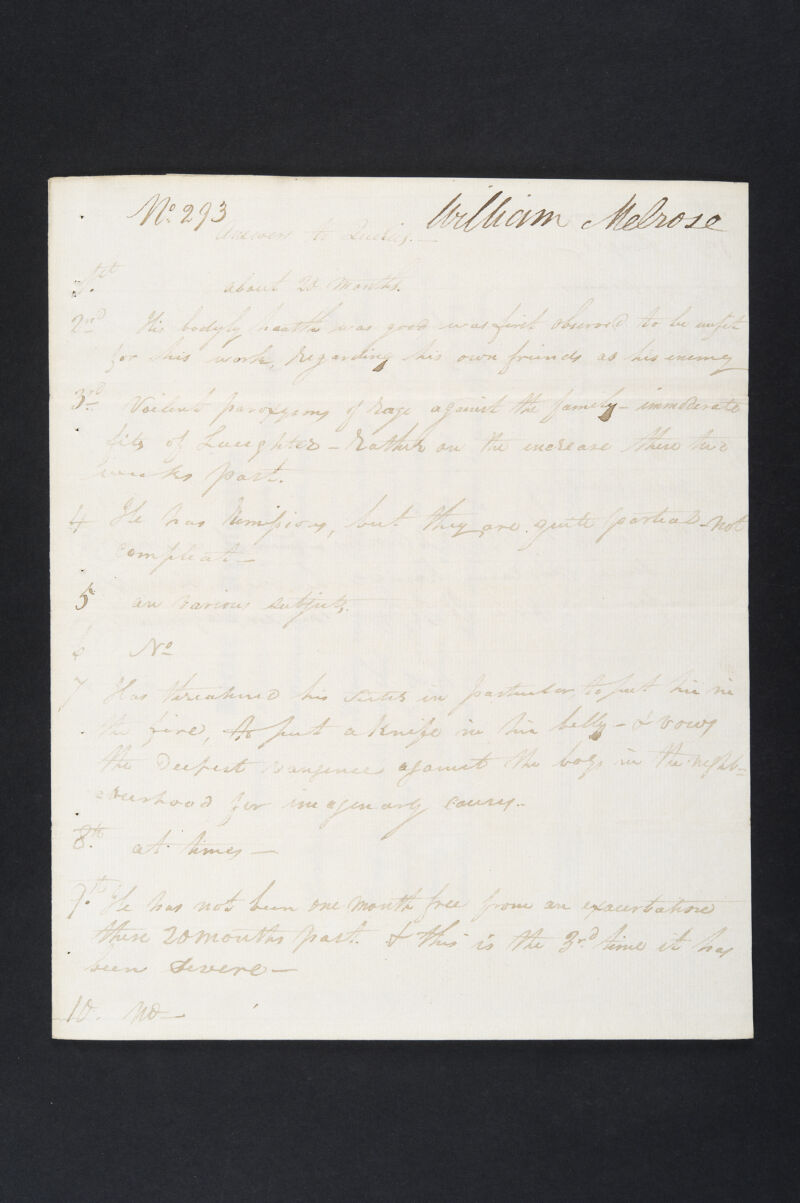 No. 293
William Melrose
Answers to Queries.—
1st. about 20 Months.
2nd His bodyly health was good was first observed to be unfit
for his work, regarding his own friends as his enemy
3rd Voilent paroxysms of rage against the family – immoderate
fits of Laughter – Rather on the increase these two
weeks past.
4 He has Remissions, but they are quite partial – not
compleat –
5 on various subjects.
6 No
7 Has threatened his sister in particular, to put her in
the fire, to put a knife in her belly – & vows
the deepest vangence against the boys in the neighb=
ourhood for imaginary causes..
8th. at times —
9th. He has not been one month free from an exacerbation
these 20 months past. & this is the 3rd time it has
been severe –
10. no —